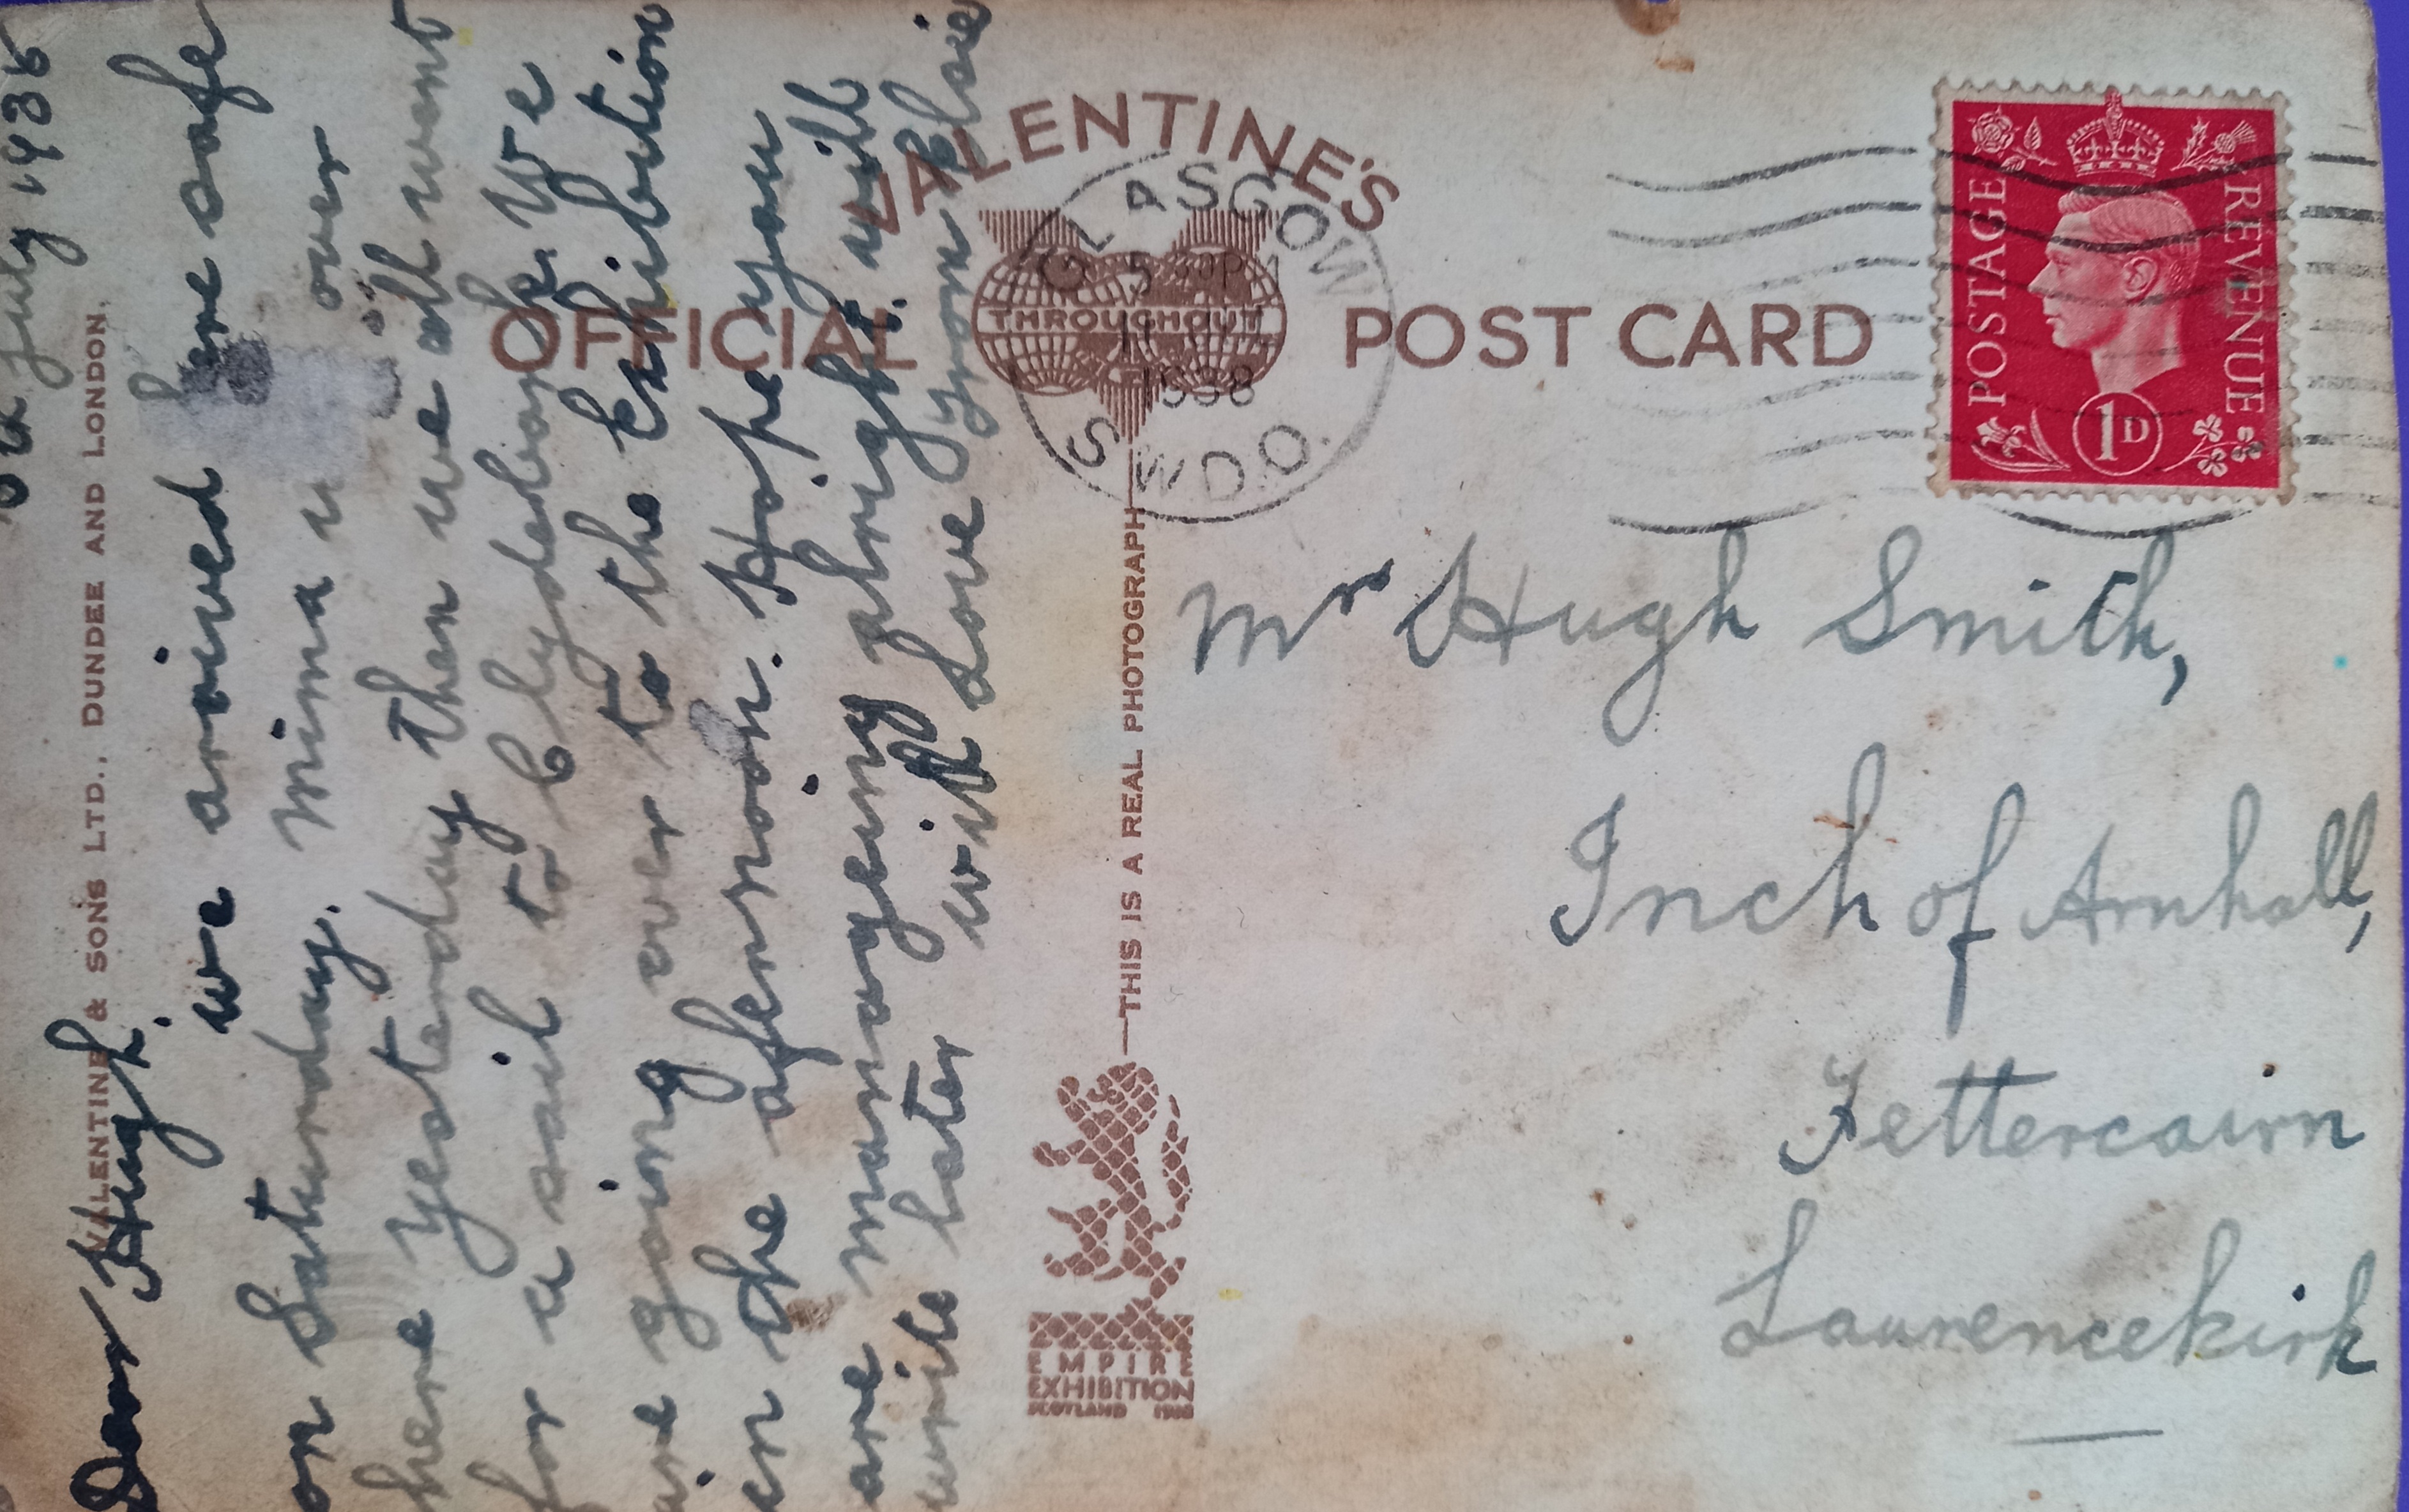 VALENTINE'S
OFFICIAL POST CARD
THROUGHOUT
GLASGOW
5 30 PM
11 JLY
1938
S.W.D.O.
POSTAGE REVENUE
1D
VALENTINE & SONS LTD., DUNDEE AND LONDON.
July 1938
Dear Hugh. we arrived here safe
on Saturday. Mima over
here yesterday then we all went
for a sail to Clydebank. We
are going over to the Exhibition
in the afernoon. Hope you
are manageing alright. will
write later with Love from Elsie
THIS IS A REAL PHOTOGRAPH
EMPIRE
EXHIBITION
SCOTLAND 1938
Mrs Hugh Smith,
Inch of Arnhall,
Fettercairn
Laurencekirk